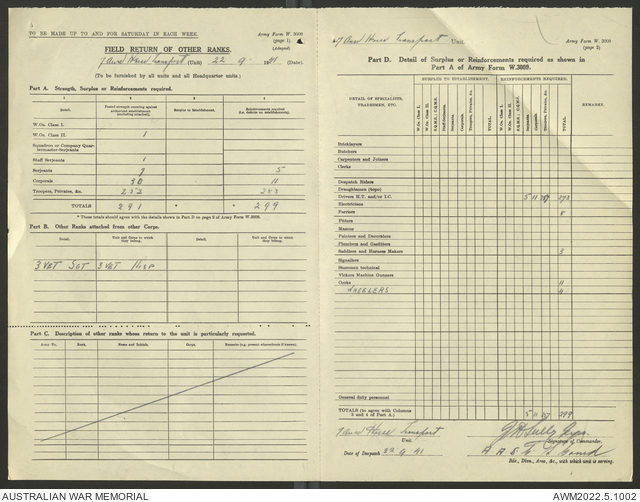 TO BE MADE UP TO AND FOR SATURDAY IN EACH WEEK.
Army Form W. 3009
(page 1)
(Adapted)
FIELD RETURN OF OTHER RANKS.
Horse Transport (Unit) 22 9 41 (Date).
(To be furnished by all units and all Headquarter units.)
Part A. Strength, Surplus or Reinforcements required.
1 2 3 4
Detail. Posted strength counting against authorized establishment (including attached). Surplus to Establishment. Reinforcements required (i.e. deficits on establishment).
W.Os. Class I.
W.Os. Class II. 1
Squadron or Company Quartermaster-Serjeants
Staff Serjeants 1
Serjeants 7 5
Corporals 30 11
Troopers, Privates, &c. 252 283
TOTALS 291 * * 299
* These totals should agree with the details shown in Part D on page 2 of Army Form W.3009.
Part B. Other Ranks attached from other Corps.
Detail. Unit and Corps to which they belong. Detail. Unit and Corps to which they belong.
3 VET SGT 3 VET
Part C. Description of other ranks whose return to the unit is particularly requested.
Army No. Rank. Name and Initials. Corps. Remarks (e.g. present whereabouts if known).
Horse Transport Unit
Army Form W. 3009
(page 2)
Part D. Detail of Surplus or Reinforcements required as shown in
Part A of Army Form W.3009.
DETAIL OF SPECIALISTS, TRADESMEN, ETC.
SURPLUS TO ESTABLISHMENT. REINFORCEMENTS REQUIRED. REMARKS.
W.Os. Class I. W.Os. Class II. S.Q.M.S.; C.Q.M.S. Staff-Serjeants. Serjeants. Corporals. Troopers, Privates, &c. TOTAL W.Os. Class I. W.Os. Class II. S.Q.M.S.; C.Q.M.S. Serjeants. Corporals. Troopers, Privates, &c. TOTAL.
Bricklayers
Butchers
Carpenters and Joiners
Clerks
Despatch Riders
Draughtsmen (topo)
Drivers H.T. and/or I.C. 5 11 273
Electricians
Farriers 8
Fitters
Masons
Painters and Decorators
Plumbers and Gasfitters
Saddlers and Harness Makers 3
Signallers
Storemen technical
Vickers Machine Gunners
Cooks 11
WHEELERS 4
General duty personnel
TOTALS (to agree with Columns
3 and 4 of Part A.) 5 11 299
Horse Transport
Unit.
Signature of Commander.
Date of Despatch 9 41
Bde., Divn., Area, &c., with which unit is serving.
AUSTRALIAN WAR MEMORIAL
AWM2022.5.1002